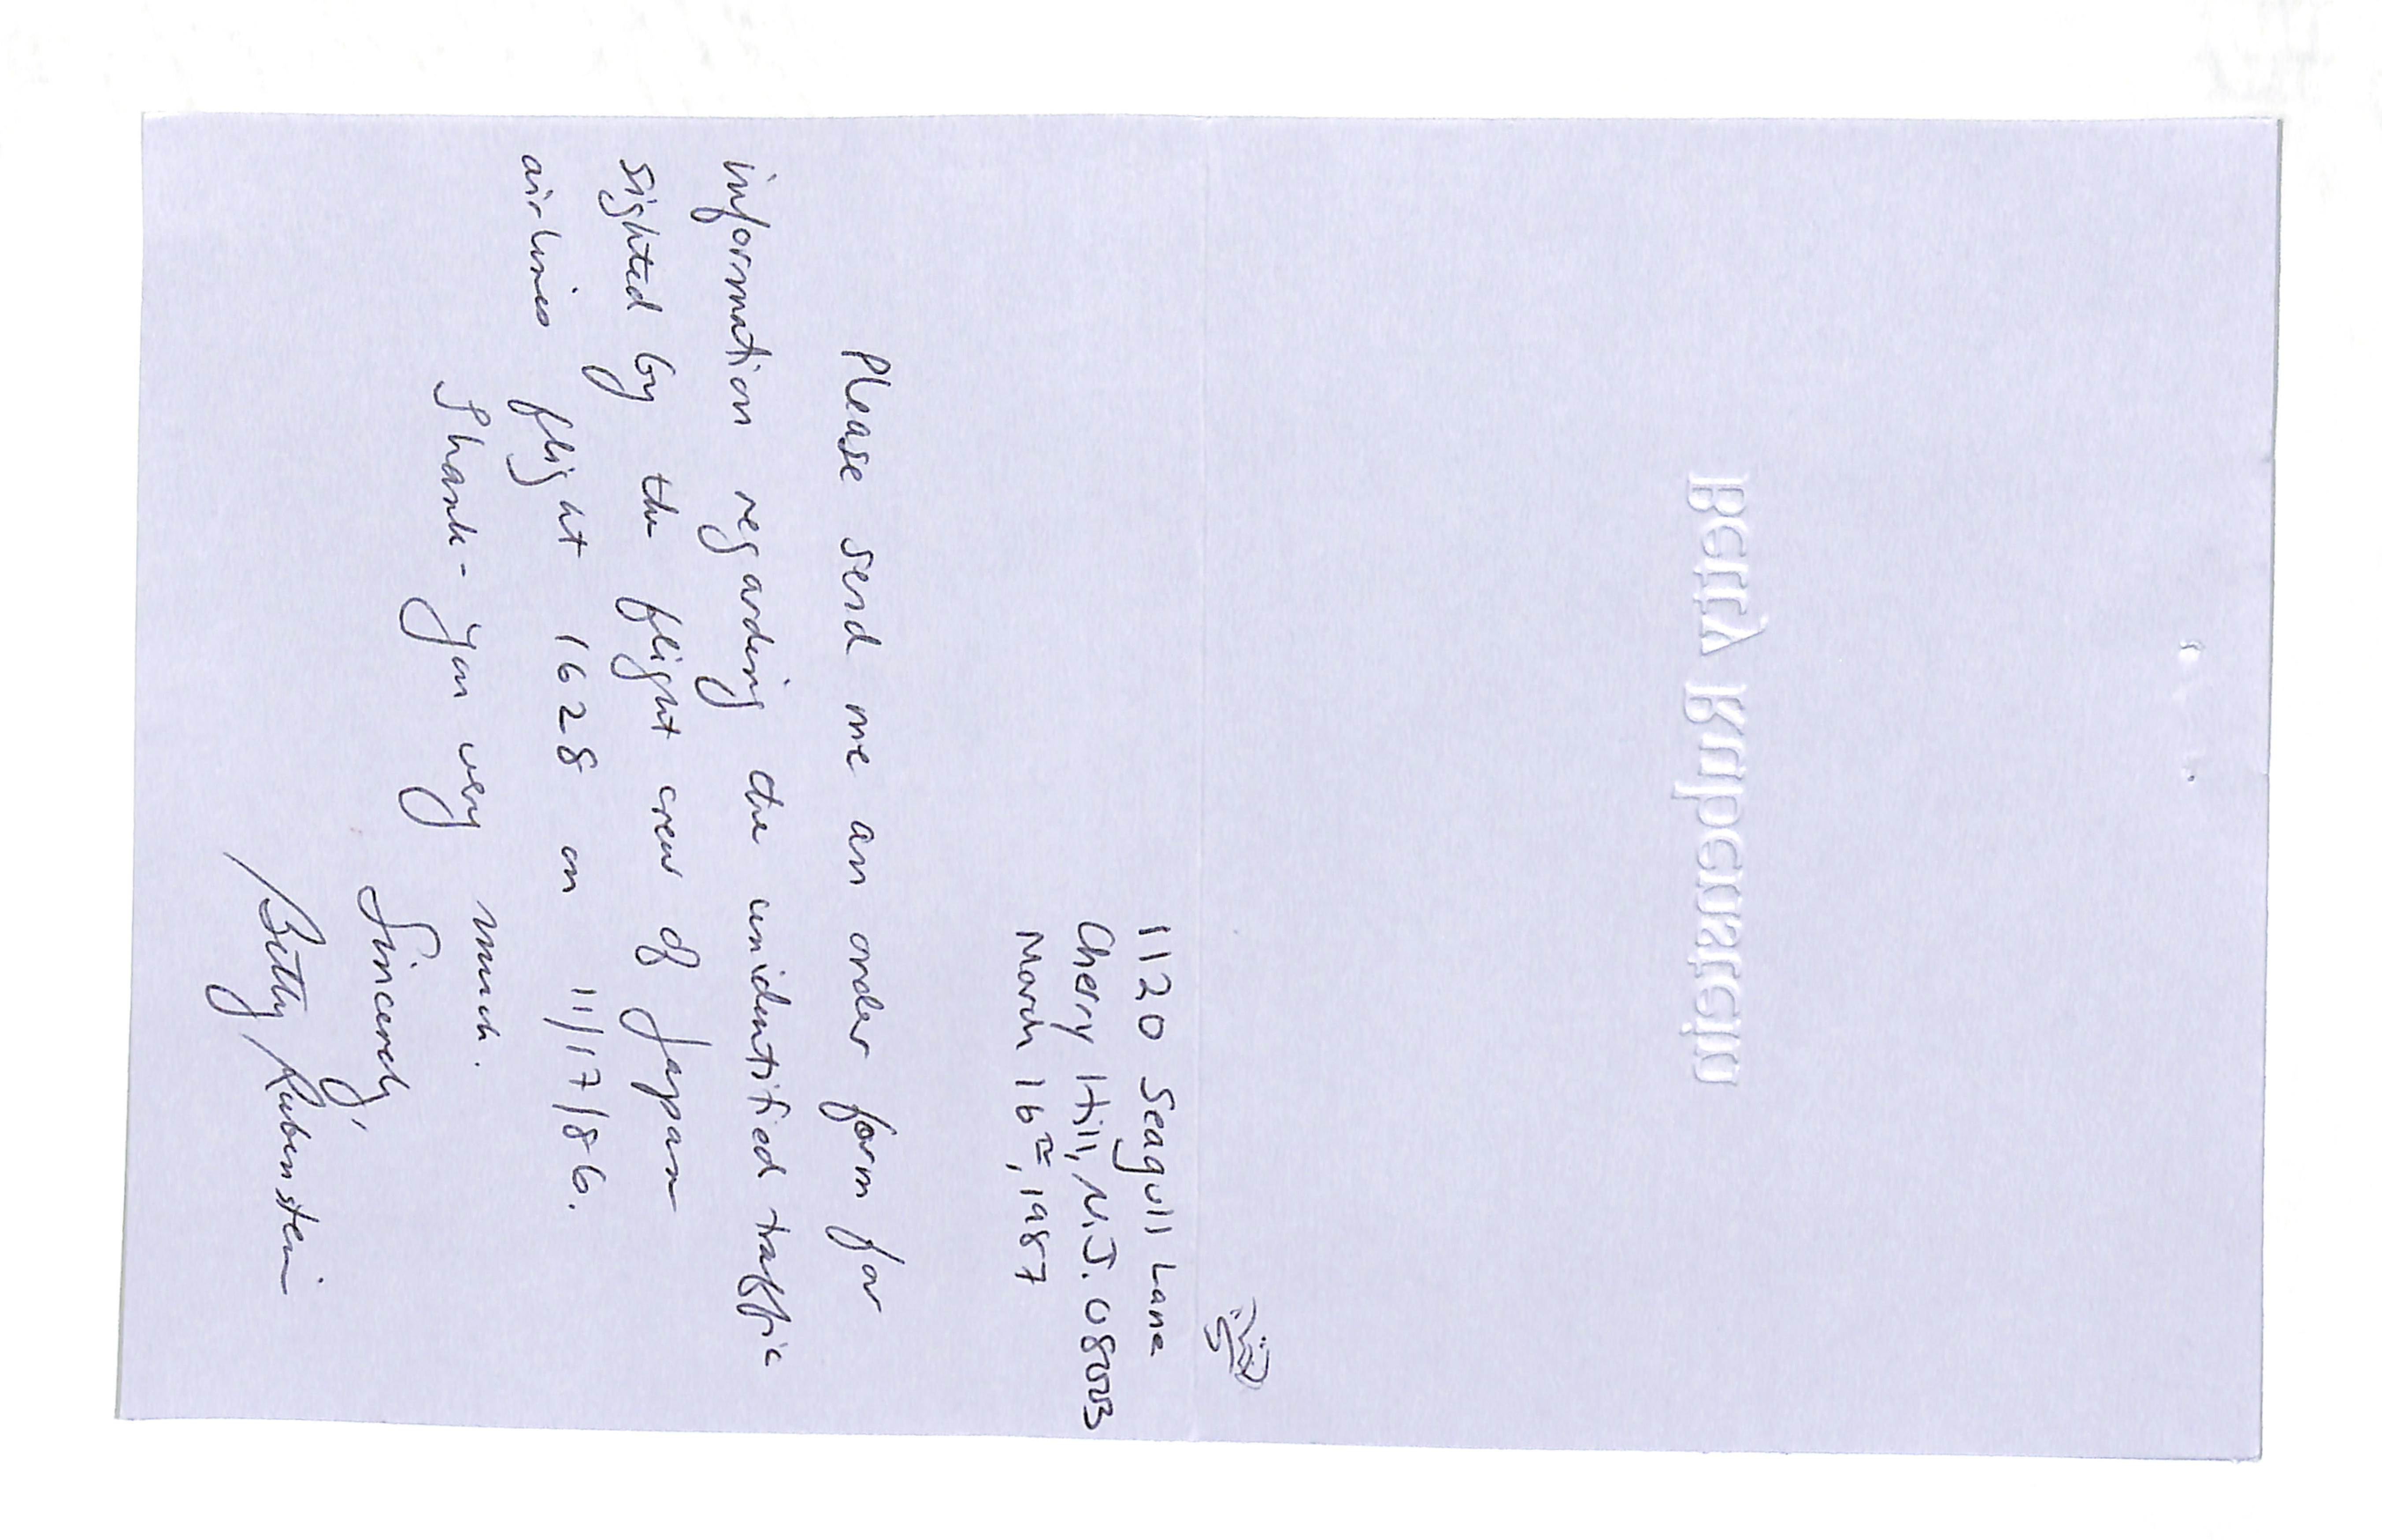 Betty Rubenstein
1120 Seagull Lane
Cherry Hill, N.J. 08003
March 16th, 1987
Please send me an order form for
information regarding the unidentified traffic
sighted by the flight crew of Japan
airlines flight 1628 on 11/17/86.
Thank-you very much.
Sincerely,
Betty Rubenstein